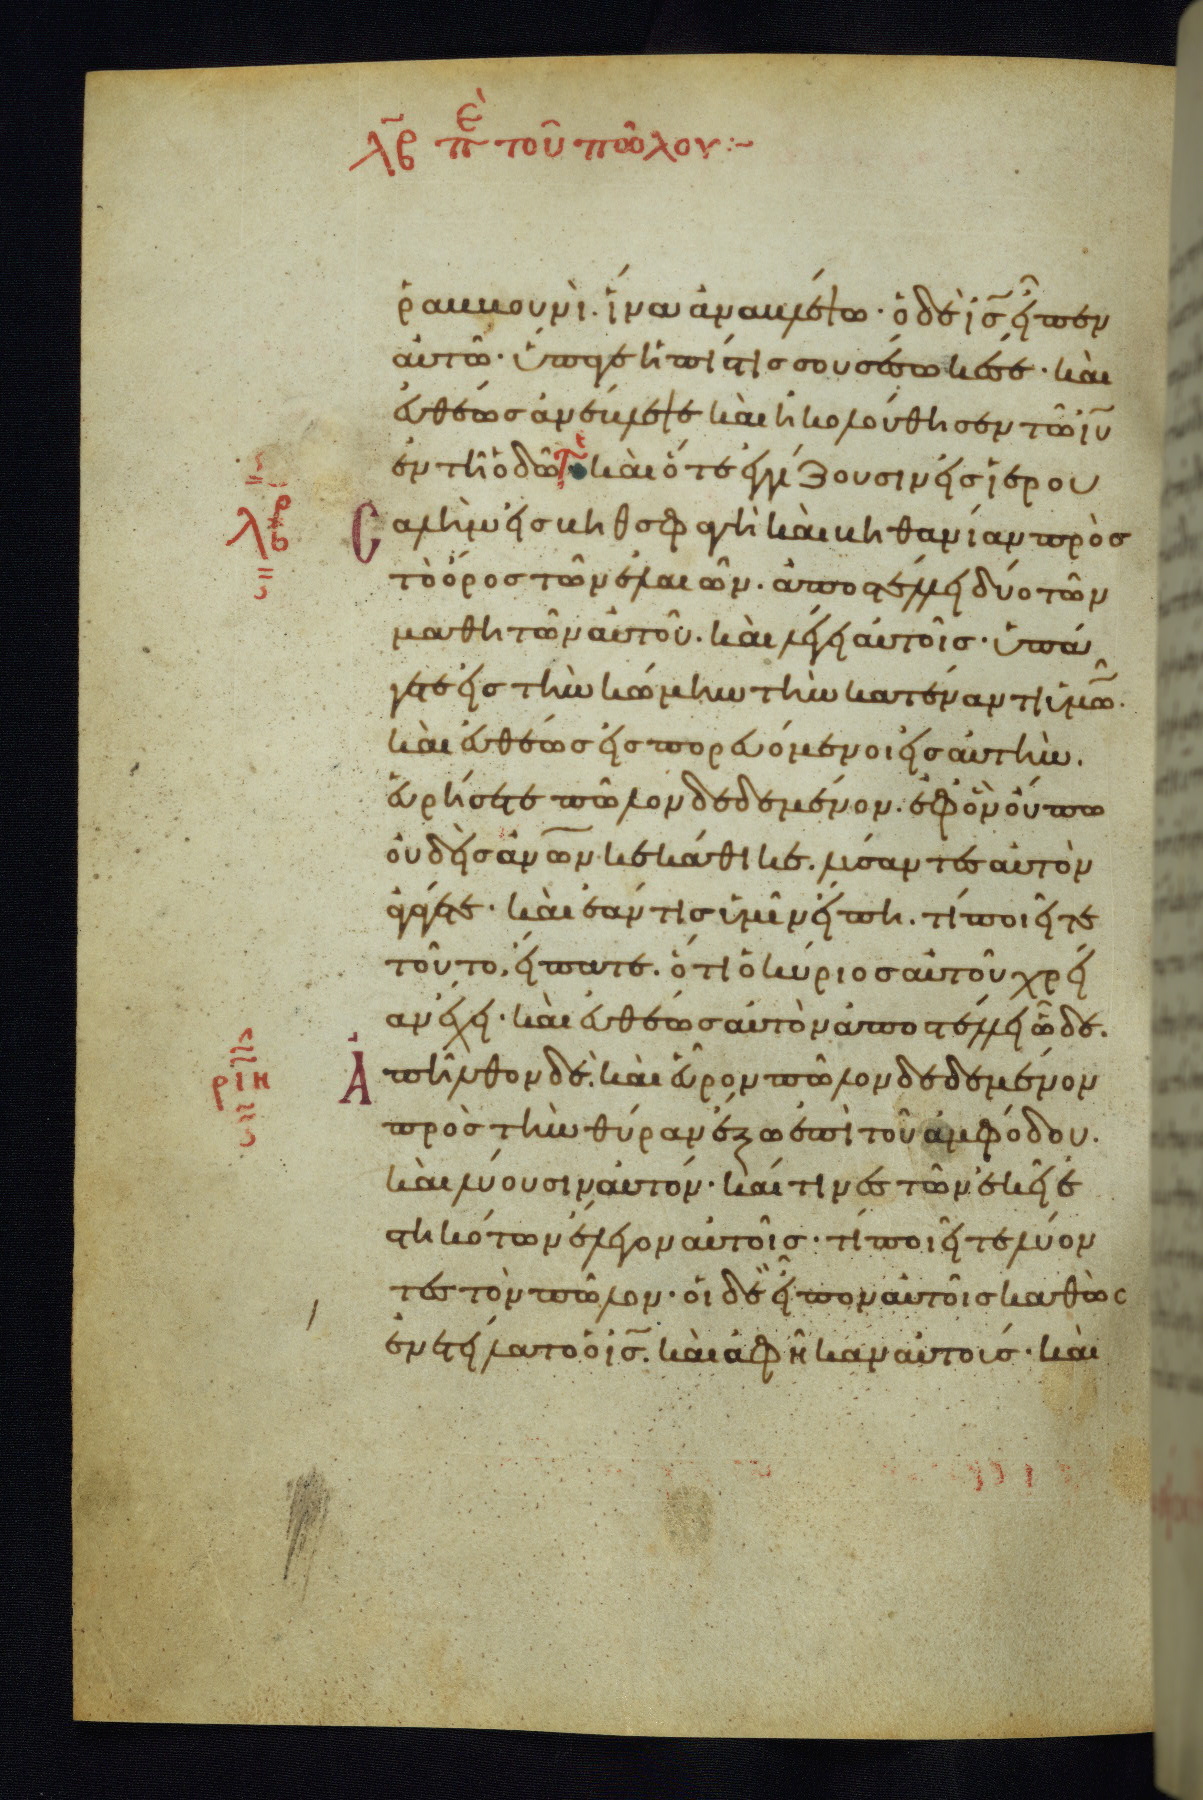 λβ πὲ τοῦ πώλου:~
ῥαββουνὶ. ἵνα ἀναβλέψω· ὁ δὲ ἰς̅ εἶπεν
αὐτῶ· ὕπαγε ἡ πίστις σου σέσωκέ σε· καὶ
εὐθέως ἀνέβλεψε καὶ ἠκολούθησεν τῶ ἰυ̅
ἐν τῆ ὁδῶ καὶ ὅτε ἐγγίζουσιν εἰς ἱερου
σαλὴμ εἰς βηθσφαγὴ καὶ βηθανίαν πρὸς
τὸ ὄρος τῶν ἐλαιῶν. ἀποστέλλει δύο τῶν
μαθητῶν αὐτοῦ. καὶ λέγει αὐτοῖς· ὑπά
γετε εἰς τὴν κώμην τὴν κατέναντι ὑμῶ̅.
καὶ εὐθέως εἰσπορευόμενοι εἰς αὐτὴν.
εὑρήσετε πῶλον δεδεμένον. ἐφ ὃν οὔπω
οὐδεὶς ἀνω̅ν κεκάθικε. λύσαντες αὐτὸν
ἀγάγετε· καὶ ἐάν τις ὑμῖν εἴπη. τί ποιεῖτε
τοῦτο, εἴπατε. ὅτι ὁ κύριος αὐτοῦ χρεί
αν ἔχει· καὶ εὐθέως αὐτὸν ἀποστέλλει ὧδε.
Ἀπῆλθον δὲ. καὶ εὗρον πῶλον δεδεμένον
πρὸς τὴν θύραν ἔξω ἐπὶ τοῦ ἀμφόδου.
καὶ λύουσιν αὐτόν· καί τινες τῶν ἐκεῖ ἑ
στηκότων ἔλεγον αὐτοῖς· τί ποιεῖτε λύον
τες τὸν πῶλον· οἱ δὲ εἶπον αὐτοῖς καθὼς
ἐνετείλατο ὁ ἰς̅. καὶ ἀφῆκαν αὐτοις· καὶ
λβ
ριη